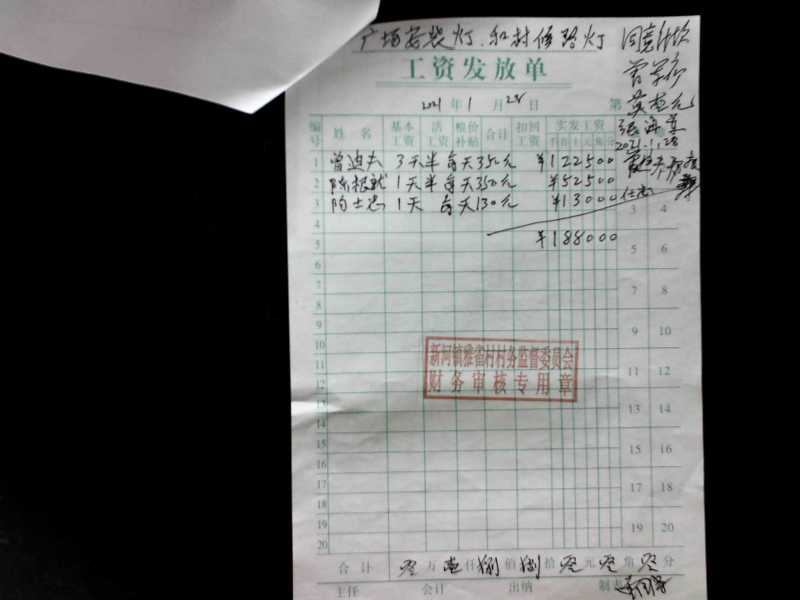 广场安装灯.和村修路灯
同意付款
工资发放单
2021年1月28日 第
编号 姓名 基本工资 活工资 粮价补贴 合计 扣回工资 实发工资
2021.1.28
1 曾迪夫 3天半 每天350元 ¥122500
2 陈根就 1天半 每天350元 ¥52500
3 陶士志 1天 每天130元 ¥13000 3 4
4
5 ¥188000 5 6
6
7 7 8
8
9 9 10
10
新河镇雅雀村村务监督委员会
11 11 12
财务审核专用章
12
13 13 14
14
15 15 16
16
17 17 18
18
19 19 20
20
合计 零万壹仟捌佰捌拾零元零角零分
主任 会计 出纳 制表